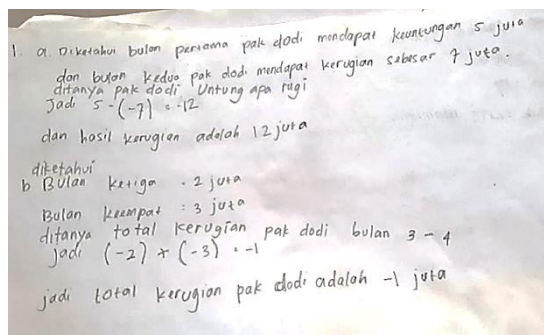 1. a. Diketahui bulan pertama pak dodi mendapat keuntungan 5 juta
dan bulan kedua pak dodi mendapat kerugian sebesar 7 juta.
ditanya pak dodi Untung apa rugi
Jadi 5 - (-7) = -12
dan hasil kerugian adalah 12 juta
diketahui
b Bulan ketiga : 2 juta
Bulan keempat : 3 juta
ditanya total kerugian pak dodi bulan 3 - 4
jadi (-2) + (-3) = -1
jadi total kerugian pak dodi adalah -1 juta